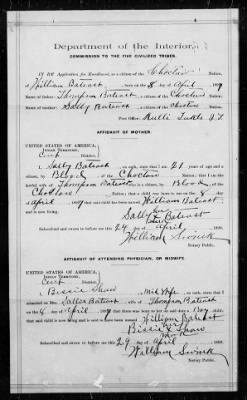 Department of the Interior,
COMMISSION TO THE FIVE CIVILIZED TRIBES.
IN RE Application for Enrollment, as a citizen of the Choctaw Nation,
of William Batiest, born on the 8 day of April, 189
Name of Father: Thompson Batiest a citizen of the Choctaw Nation.
Name of mother: Sally Batiest a citizen of the Choctaw Nation.
Post Office: Tuklo I.T.
AFFIDAVIT OF MOTHER.
UNITED STATES OF AMERICA,
INDIAN TERRITORY,
Cent District.
I, Sally Batiest, on oath, state that I am 21 years of age and a
citizen, by Blood, of the Choctaw Nation; that I am the
lawful wife of Thompson Batiest, who is a citizen, by Blood of the
Choctaw Nation; that a child was born to me on the 8 day
of April, 189; that said child has been named William Batiest,
and is now living.
Sally Batiest
Subscribed and sworn before me this 24 day of April 189
William
Notary Public.
AFFIDAVIT OF ATTENDING PHYSICIAN, OR MIDWIFE.
UNITED STATES OF AMERICA,
INDIAN TERRITORY,
Cent District.
I, Bissie Shaw, a mid wife, on oath, state that I
attended on Mrs. Sallie Batiest, wife of Thompson Batiest
on the 8 day of April, 189; that there was born to her on said date a Boy child;
that said child is now living and is said to have been named William Batiest
Bissie Shaw
Subscribed and sworn to before me this 29 day of April 189
William
Notary Public.